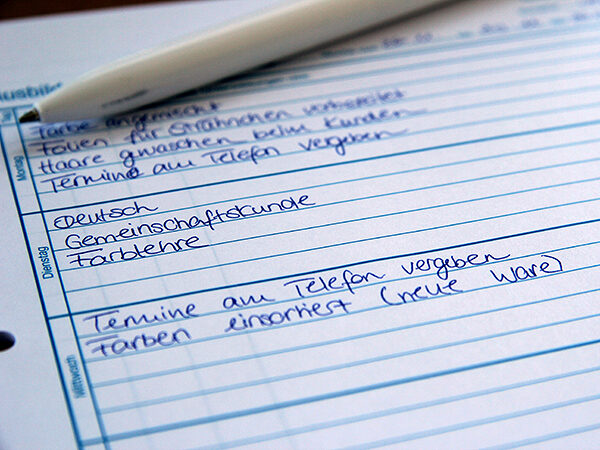 Farbe angemischt
Folien für Strähnchen vorbereitet
Haare gwaschen beim Kunden
Termine am Telefon vergeben
Montag
Deutsch
Gemeinschaftskunde
Farblehre
Dienstag
Termine am Telefon vergeben
Farben einsortiert (neue Ware)
Mittwoch